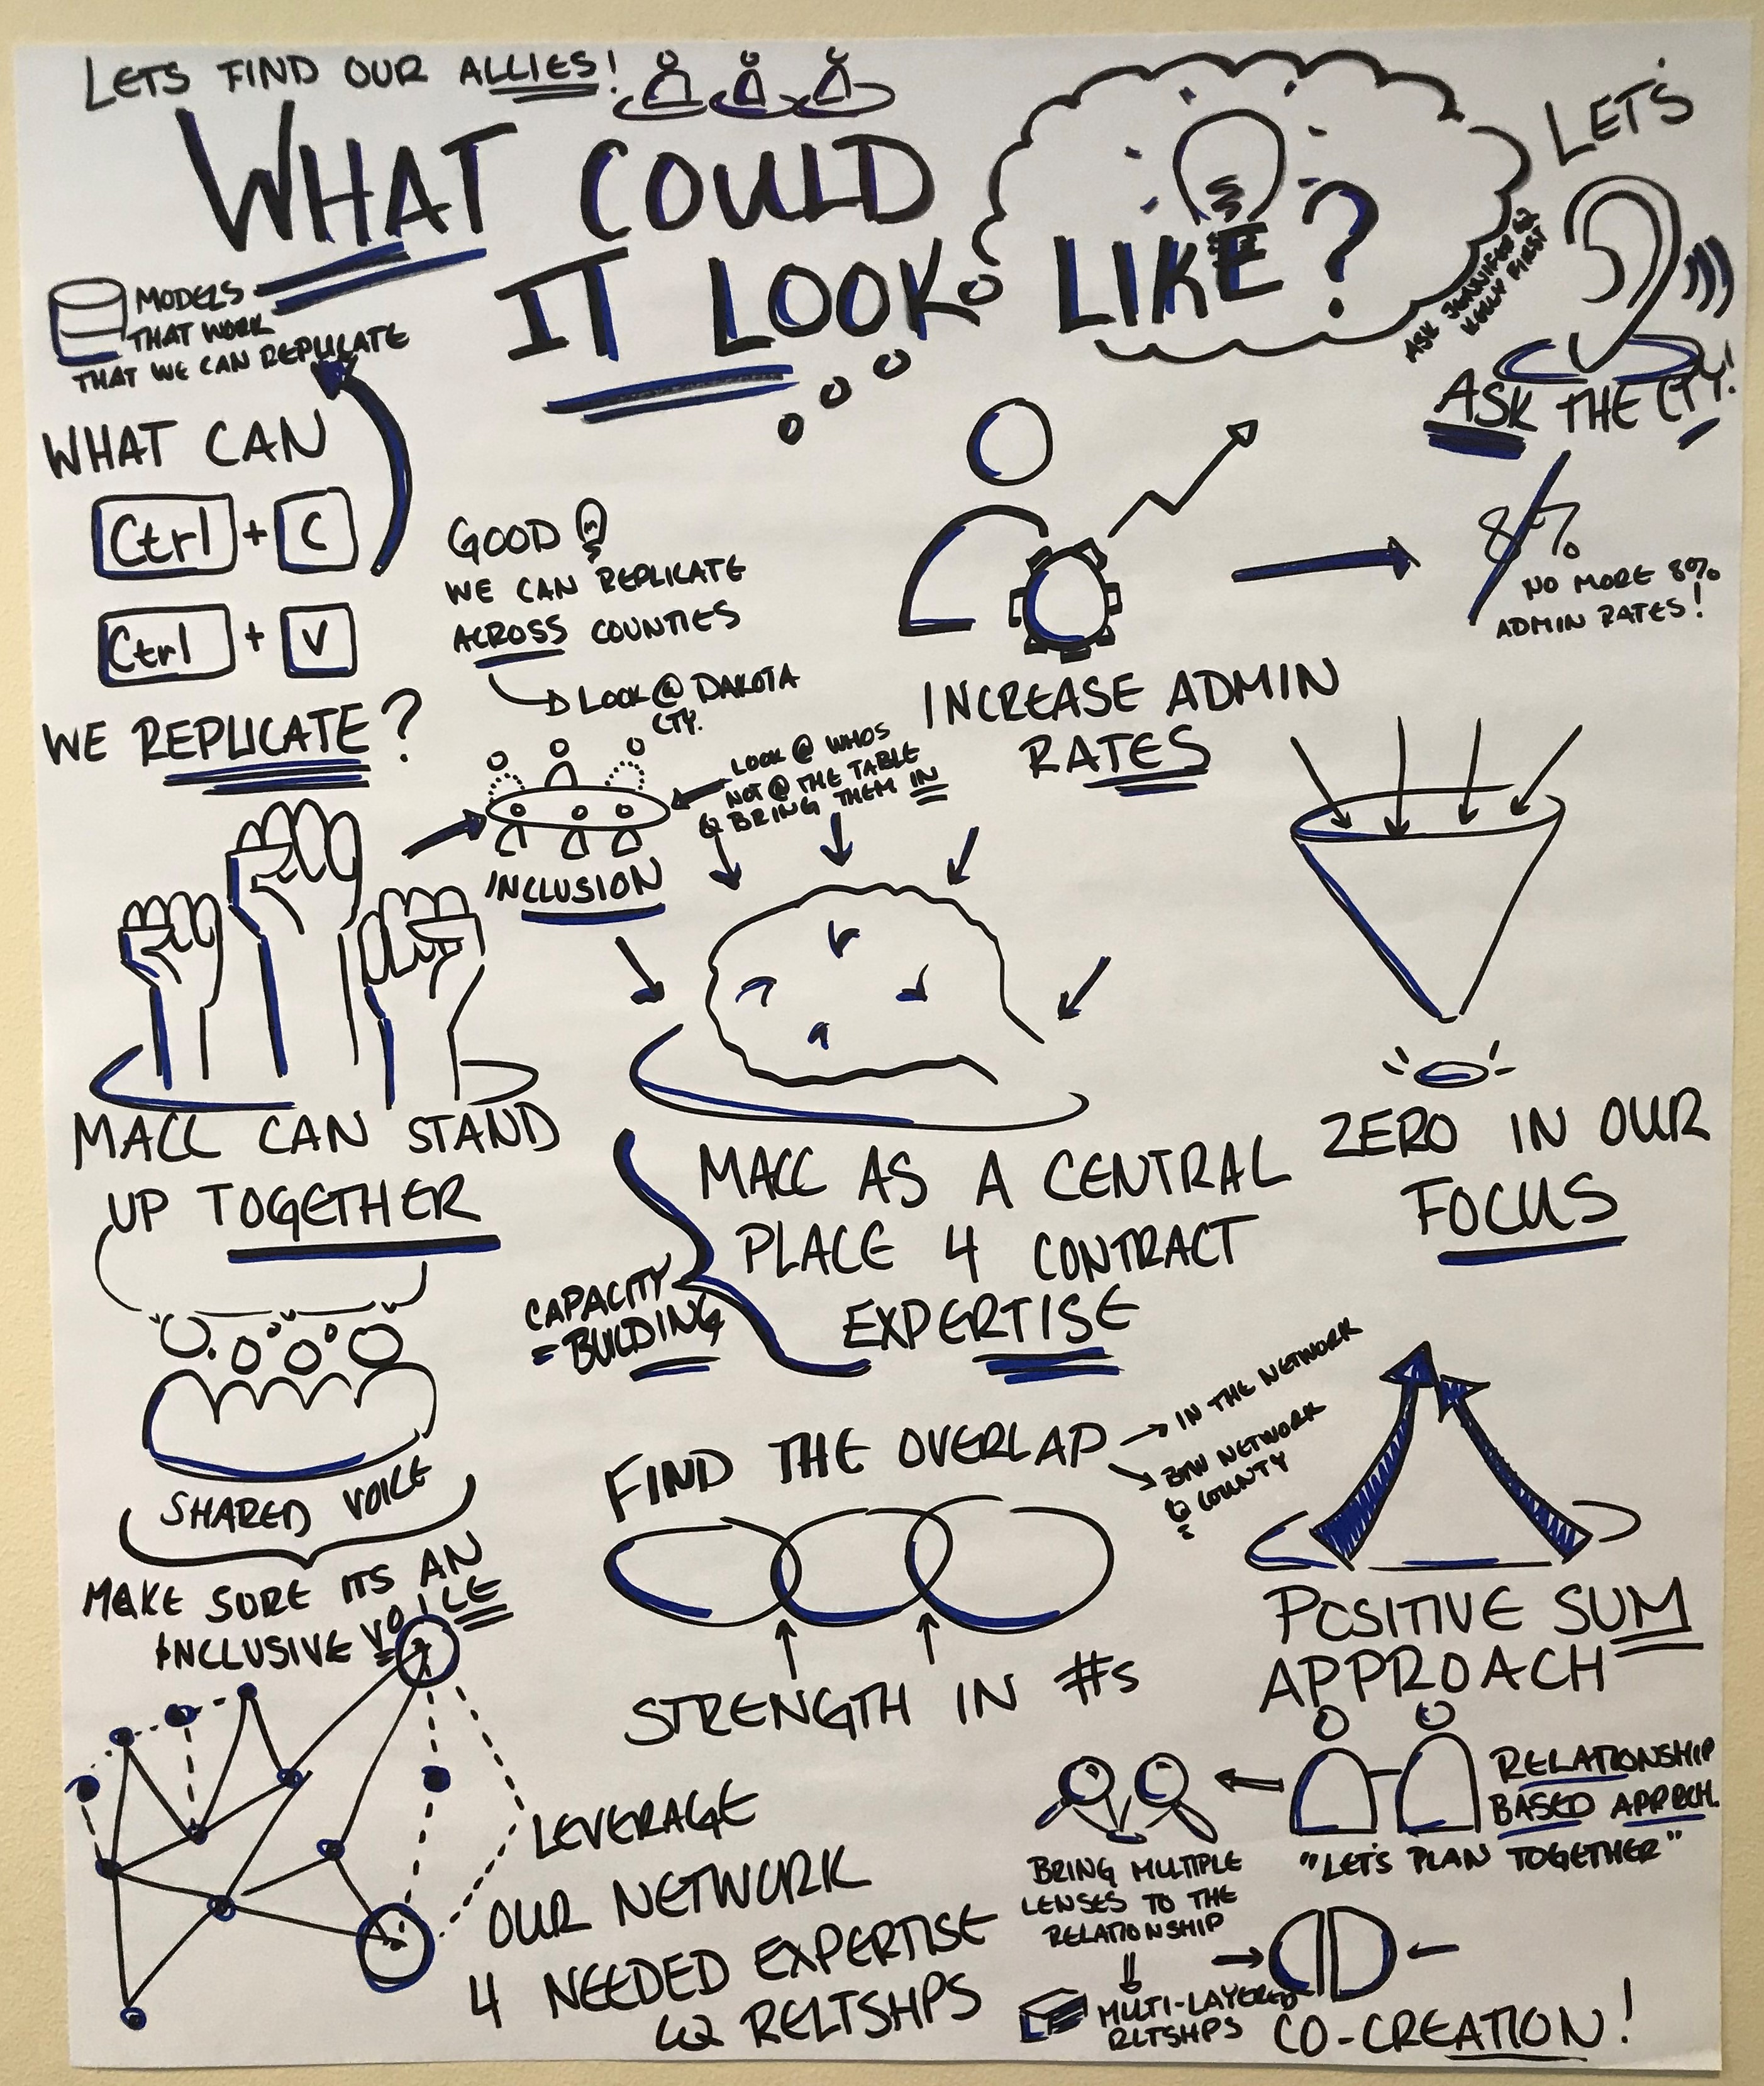 LETS FIND OUR ALLIES!
WHAT COULD
IT LOOK LIKE?
LET'S
ASK JENNIFER &
KELLY FIRST
ASK THE CTY!
MODELS
THAT WORK
THAT WE CAN REPLICATE
WHAT CAN
Ctrl + C
Ctrl + V
WE REPLICATE?
GOOD
WE CAN REPLICATE
ACROSS COUNTIES
LOOK @ DAKOTA
CTY.
INCREASE ADMIN
RATES
8%
NO MORE 8%
ADMIN RATES!
LOOK @ WHOS
NOT @ THE TABLE
& BRING THEM IN
INCLUSION
MACC CAN STAND
UP TOGETHER
SHARED VOICE
MAKE SURE ITS AN
INCLUSIVE VOICE
MACC AS A CENTRAL
PLACE 4 CONTRACT
EXPERTISE
CAPACITY
BUILDING
ZERO IN OUR
FOCUS
FIND THE OVERLAP
IN THE NETWORK
BTW NETWORK
& COUNTY
STRENGTH IN #s
POSITIVE SUM
APPROACH
RELATIONSHIP
BASED APPRCH.
"LET'S PLAN TOGETHER"
BRING MULTIPLE
LENSES TO THE
RELATIONSHIP
MULTI-LAYERED
RLTSHPS
CO-CREATION!
LEVERAGE
OUR NETWORK
4 NEEDED EXPERTISE
& RELTSHPS